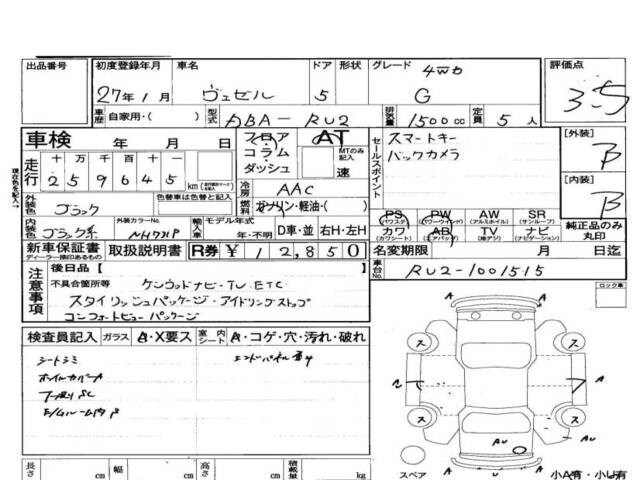 出品番号 初度登録年月 車名 ドア 形状 グレード 評価点
27年1月 ヴェゼル 5 4WD G 3.5
車歴 自家用・( ) 型式 ABA-RU2 排気量 1500cc 定員 5人
車検 年 月 日 フロア コラム・ダッシュ AT MTのみ記入 速 セールスポイント スマートキー バックカメラ [外装] B
走行 十万千百十一 259645 km
現在色を記入→
外装色 ブラック 色替車は色替と記入 冷房 AAC 燃料 ガソリン・軽油・( ) [内装] B
内装色 ブラック系 外装カラーNo. NH731P 輸入車 モデル年式 年・不明 D車・並 右H・左H
PS (パワステ) PW (パワーウィンド) AW (アルミホイル) SR (サンルーフ) 純正品のみ丸印
カワ (カワシート) AB (エアバッグ) TV (地デジ) ナビ (ナビゲーション)
新車保証書 ディーラー捺印あるもの 取扱説明書 R券 ¥12,850 名変期限 月 日迄
注意事項 後日品[ ] 車台No. RU2-1001515
不具合箇所等 ケンウッドナビ・TV・ETC
スタイリッシュパッケージ・アイドリングストップ
コンフォートビューパッケージ
ロック車
検査員記入 ガラス A・X要ス 室内シート A・コゲ・穴・汚れ・破れ
シートシミ
ホイルカバーA
ス ス ス ス
A A A A AU U
スペア 小A有・小U有
長さ cm 幅 cm 高さ cm 積載量 kg